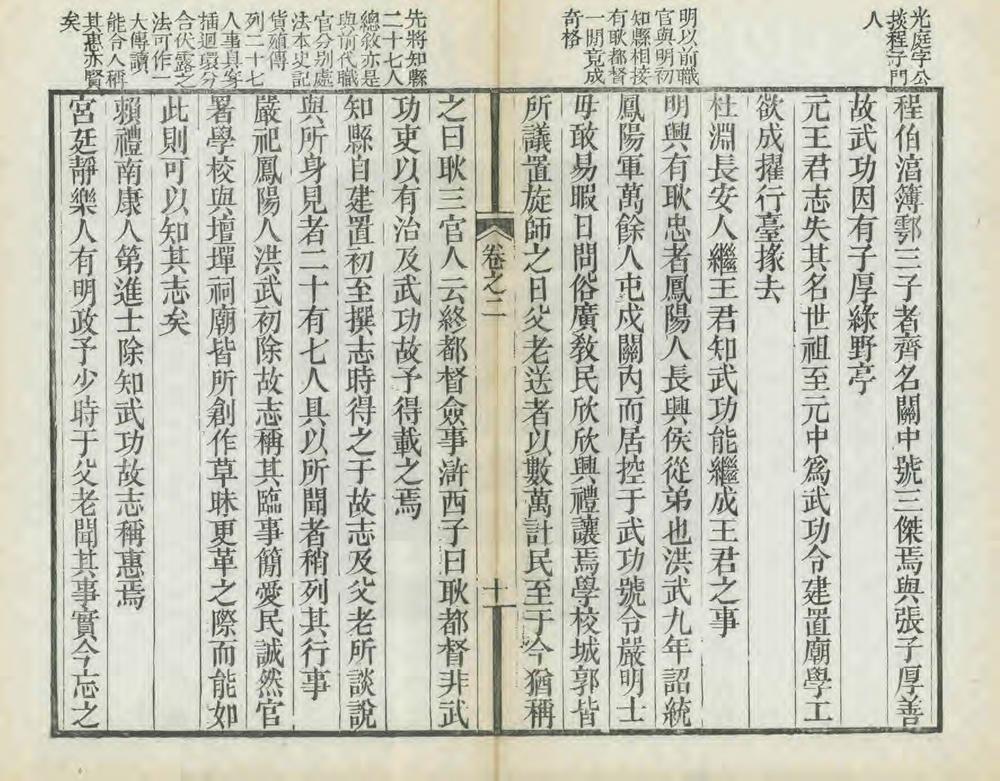 光庭字公
掞程子門
人
明以前職
官與明初
知縣相接
有耿都督
一閒竟成
奇格
程伯湻簿鄠三子者齊名關中號三傑焉與張子厚善
故武功因有子厚綠野亭
元王君志失其名世祖至元中爲武功令建置廟學工
欲成擢行臺掾去
杜淵長安人繼王君知武功能繼成王君之事
明興有耿忠者鳳陽人長興侯從弟也洪武九年詔統
鳳陽軍萬餘人屯戍關內而居控于武功號令嚴明士
毋敢易暇日問俗廣敎民欣欣興禮讓焉學校城郭皆
所議置旋師之日父老送者以數萬計民至于今猶稱
卷之二
十
先將知縣
二十七人
總敘亦是
與前代職
官分別處
法本史記
貨殖傳
列二十七
人事具穿
插迴環分
合伏露之
法可作一
大傳讀
能令人稱
其惠亦賢
矣
之曰耿三官人云終都督僉事滸西子曰耿都督非武
功吏以有治及武功故予得載之焉
知縣自建置初至撰志時得之于故志及父老所談說
與所身見者二十有七人具以所聞者稍列其行事
嚴祀鳳陽人洪武初除故志稱其臨事簡愛民誠然官
署學校與壇墠祠廟皆所創作草昧更革之際而能如
此則可以知其志矣
賴禮南康人第進士除知武功故志稱惠焉
宮廷靜樂人有明政予少時于父老聞其事實今忘之